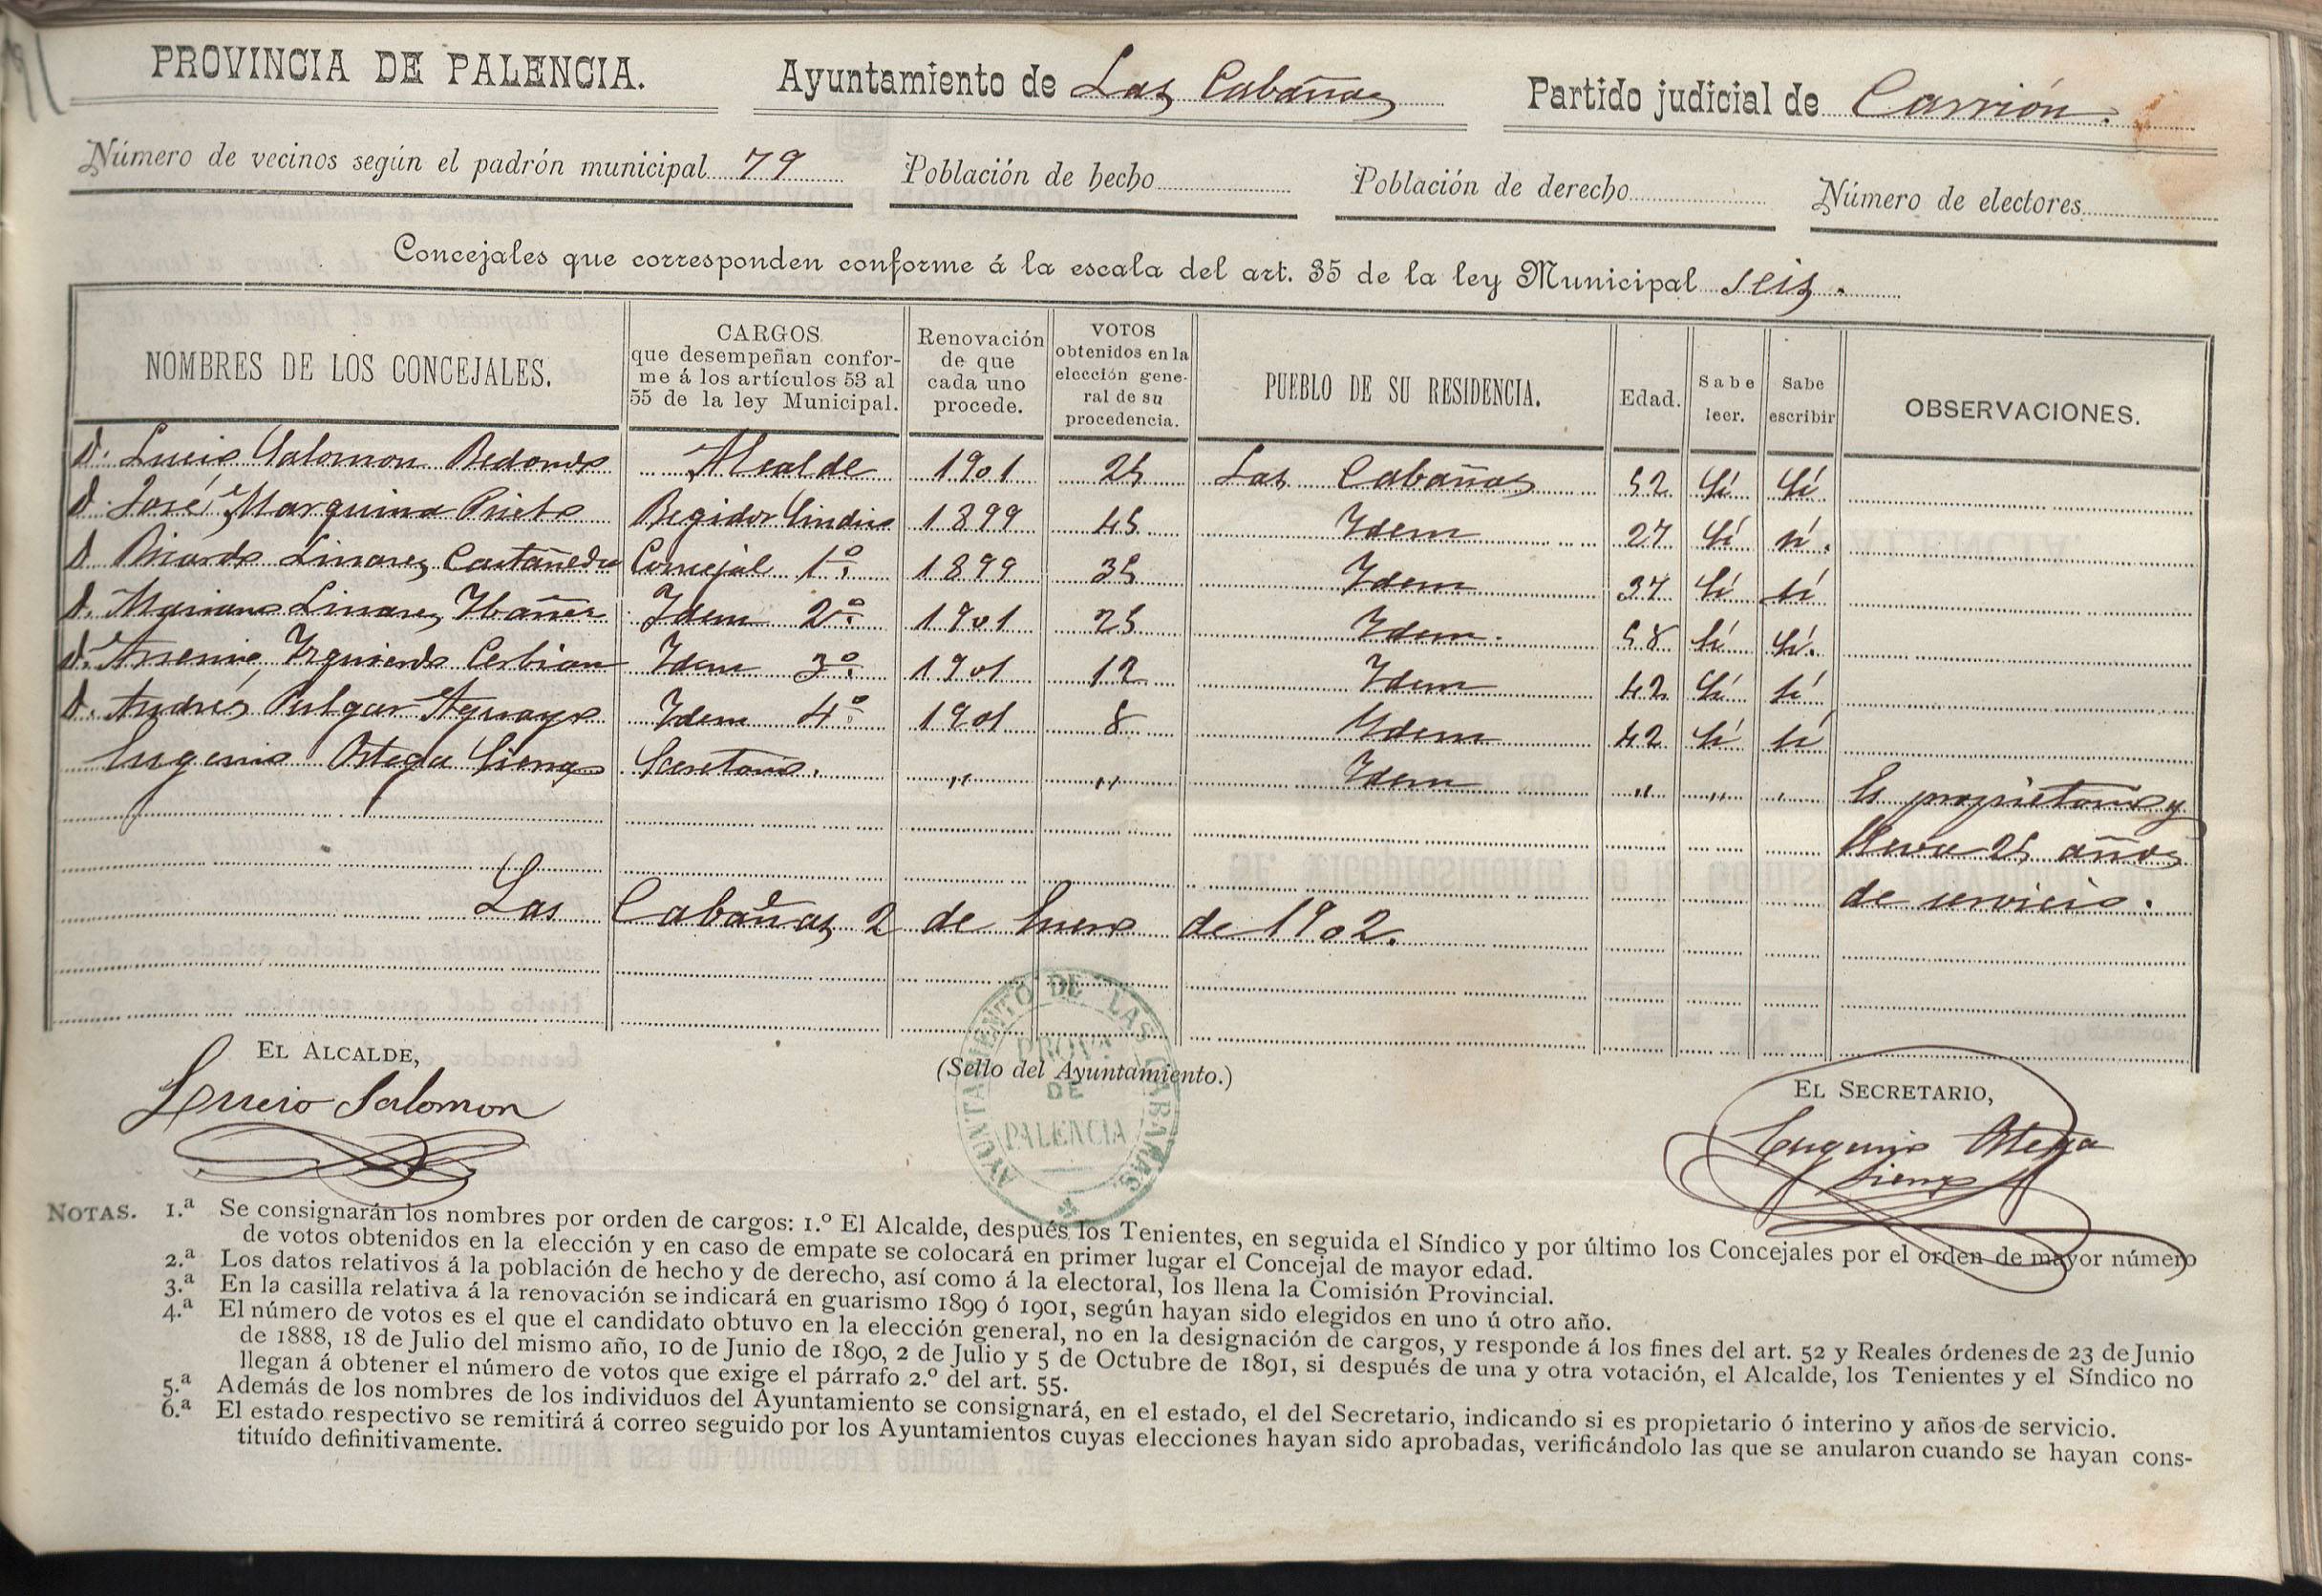 PROVINCIA DE PALENCIA. Ayuntamiento de Las Cabañas Partido judicial de Carrión.
Número de vecinos según el padrón municipal 79 Población de hecho Población de derecho Número de electores
Concejales que corresponden conforme á la escala del art. 35 de la ley Municipal seis.
NOMBRES DE LOS CONCEJALES.
CARGOS
que desempeñan confor-
me á los artículos 53 al
55 de la ley Municipal.
Renovación
de que
cada uno
procede.
VOTOS
obtenidos en la
elección gene-
ral de su
procedencia.
PUEBLO DE SU RESIDENCIA.
Edad.
Sabe
leer.
Sabe
escribir
OBSERVACIONES.
D. Lucio Salomon Redondo Alcalde 1901 25 Las Cabañas 52 Sí Sí
D. José Marquina Prieto Regidor Sindico 1899 45 Idem 27 Sí sí.
D. Ricardo Linares Castañeda Concejal 1º. 1899 35 Idem 37 Sí sí
D. Mariano Linares Ibañez Idem 2º. 1901 25 Idem. 58 Sí Sí.
D. Arsenio Izquierdo Cebrian Idem 3º. 1901 12 Idem 42 Sí sí
D. Andrés Pulgar Aguayo Idem 4º. 1901 8 Idem 42 Sí sí
Eugenio Ortega Sierra Secretario. " " Idem " " " Es propietario y
lleva 25 años
de servicio.
Las Cabañas 2 de Enero de 1902.
EL ALCALDE,
Lucio Salomon
(Sello del Ayuntamiento.)
AYUNTAMIENTO DE LAS CABAÑAS
PROVA
DE
PALENCIA
EL SECRETARIO,
Eugenio Ortega
Sierra
NOTAS. 1.ª Se consignarán los nombres por orden de cargos: 1.º El Alcalde, después los Tenientes, en seguida el Síndico y por último los Concejales por el orden de mayor número
de votos obtenidos en la elección y en caso de empate se colocará en primer lugar el Concejal de mayor edad.
2.ª Los datos relativos á la población de hecho y de derecho, así como á la electoral, los llena la Comisión Provincial.
3.ª En la casilla relativa á la renovación se indicará en guarismo 1899 ó 1901, según hayan sido elegidos en uno ú otro año.
4.ª El número de votos es el que el candidato obtuvo en la elección general, no en la designación de cargos, y responde á los fines del art. 52 y Reales órdenes de 23 de Junio
de 1888, 18 de Julio del mismo año, 10 de Junio de 1890, 2 de Julio y 5 de Octubre de 1891, si después de una y otra votación, el Alcalde, los Tenientes y el Síndico no
llegan á obtener el número de votos que exige el párrafo 2.º del art. 55.
5.ª Además de los nombres de los individuos del Ayuntamiento se consignará, en el estado, el del Secretario, indicando si es propietario ó interino y años de servicio.
6.ª El estado respectivo se remitirá á correo seguido por los Ayuntamientos cuyas elecciones hayan sido aprobadas, verificándolo las que se anularon cuando se hayan cons-
tituído definitivamente.